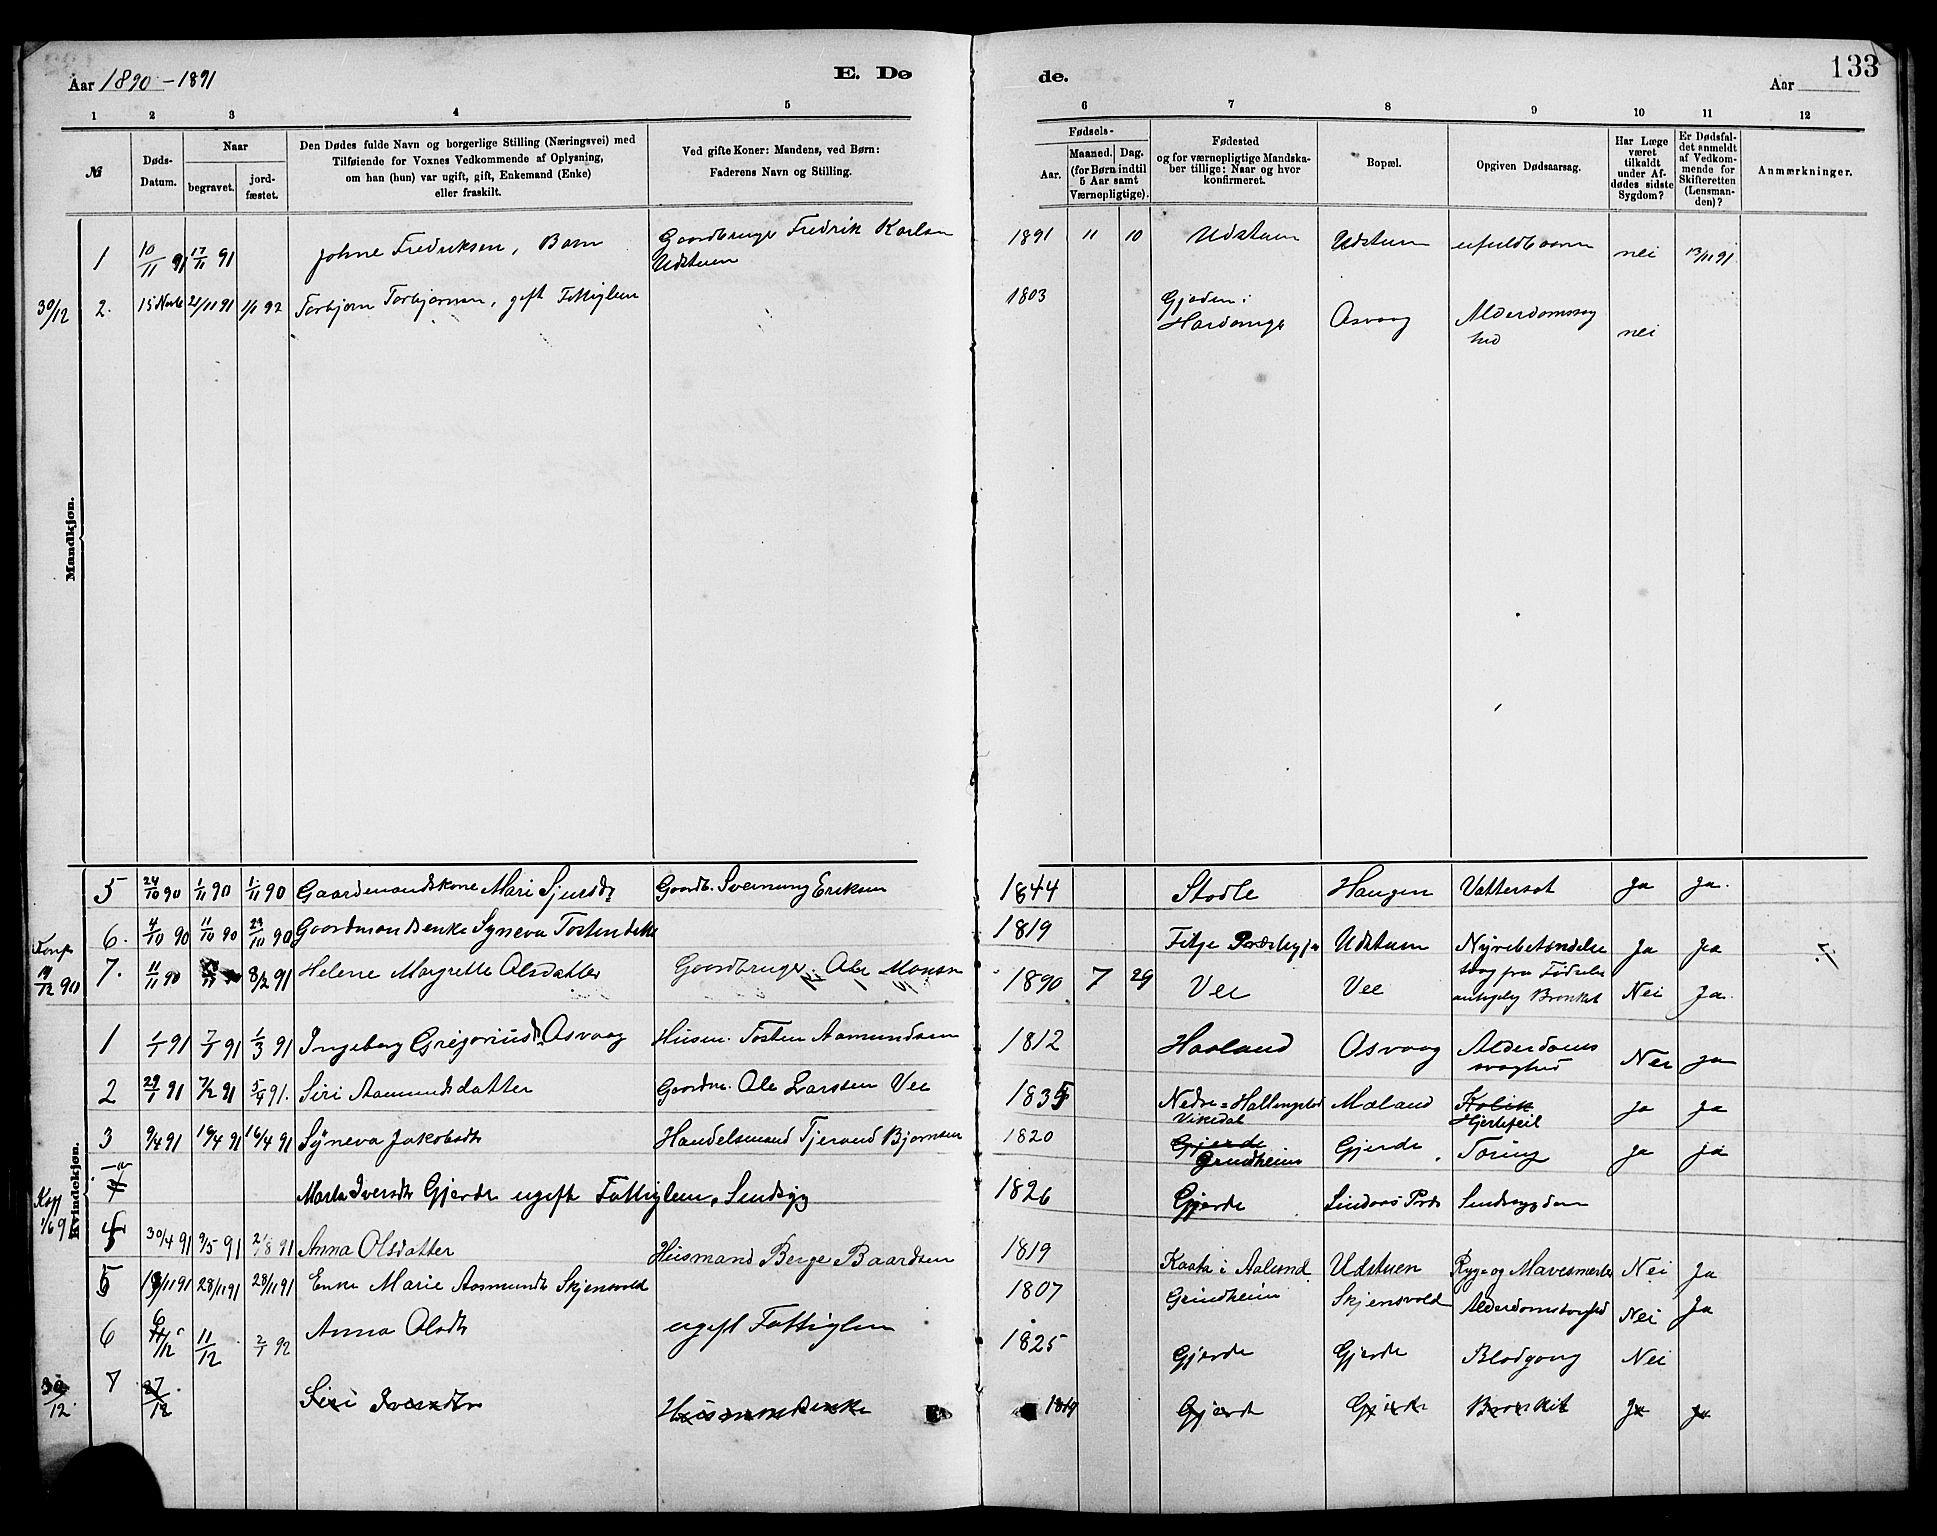 Aar 1890-1891
E. Dø
de.
Aar
133
1 2 3 4 5 6 7 8 9 10 11 12
№
Døds-Datum.
Naar
begravet.
jord-fæstet.
Den Dødes fulde Navn og borgerlige Stilling (Næringsvei) med
Tilføiende for Voxnes Vedkommende af Oplysning,
om han (hun) var ugift, gift, Enkemand (Enke)
eller fraskilt.
Ved gifte Koner: Mandens, ved Børn:
Faderens Navn og Stilling.
Fødsels-
Aar.
Maaned. Dag.
(for Børn indtil
5 Aar samt
Værnepligtige).
Fødested
og for værnepligtige Mandska-
ber tillige: Naar og hvor
konfirmeret.
Bopæl.
Opgiven Dødsaarsag.
Har Læge
været
tilkaldt
under Af-
dødes sidste
Sygdom?
Er Dødsfal-
det anmeldt
af Vedkom-
mende for
Skifteretten
(Lensman-
den)?
Anmærkninger.
Mandkjøn.
1 10/11 91 17/11 91 Johne Fredriksen, Barn Gaardbruger Fredrik Karlsen Udstuen 1891 11 10 Udstuen Udstuen ufuldbaaren nei 13/11 91
30/12 2. 15 Novb 21/11 91 1/1 92 Torbjørn Torbjørnsen, gift Fattiglem 1803 Gjøden i Hardanger Osvaag Alderdomssvaghed nei
Kvindekjøn.
5 24/10 90 1/11 90 1/11 90 Gaardmandskone Mari Sjursdt Gaardb. Sveinung Eriksen 1844 Stødle Haugen Vattersot Ja Ja.
6. 4/10 90 11/10 90 29/10 90 Gaardmandsenke Syneva Tostensdatter 1819 Fitje Præstegj Udstuen Nyrebetændelse Ja Ja
19/12 90 7. 11/11 90 8/2 91 Helene Margrethe Olsdatter Gaardbruger Ole Monsen 1890 7 29 Vee Vee svag fra Fødselen antagelig Bronkit Nei Ja.
1 1/1 91 7/1 91 1/3 91 Ingeborg Gregoriusdt. Osvaag Husm. Tosten Aamundsen 1812 Haaland Osvaag Alderdoms svaghed Nei Ja
2 29/1 91 7/2 91 5/4 91. Siri Aamundsdatter Gaardm. Ole Larsen Vee 1835 Nedre-Hallingstad Vikedal Mæland Kolik Hjertefeil Ja Ja
3 9/4 91 16/4 91 16/4 91 Syneva Jakobsdt Handelsmand Tjerand Bjørnsen 1820 Gjerde Grindheim Gjerde Tæring Ja ja
Marta Iversdt Gjerde ugift Fattiglem, Sindsyg 1826 Gjerde Lindaas Præs Sindssygdom
4 30/4 91 9/5 91 2/8 91 Anna Olsdatter Husmand Berge Baardsen 1819 Kaata i Aalund Udstuen Ryg- og Mavesmerter Nei Ja
5 19/11 91 28/11 91 28/11 91 Enke Marie Aasmundsdt Skjensvold 1807 Grindheim Skjensvold Alderdomssvaghed Nei Ja
6 11/12 2/1 92 Anna Olsdt ugift Fattiglem 1825 Gjerde Gjerde Blodgang Nei
30/12. 7 27/12 Siri Iversdtr Husmandsenke 1819 Gjerde Gjerde Bronkit Ja Ja